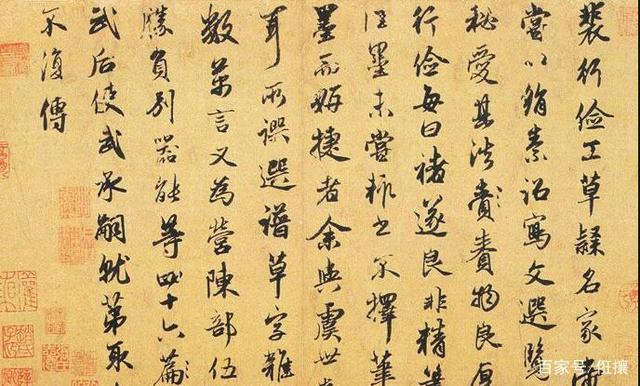 裴行儉工草隸名家
嘗以絹素詔寫文選覽
秘愛其法賚賚物良厚
行儉每曰褚遂良非精
佳墨未嘗輒書不擇筆
墨而妍捷者余與虞世
耳所譔選譜草字雜
數萬言又為營陳部伍
勝負別器能等四十六篇
武后使武承嗣就第取
不復傳
百家号/俇攘